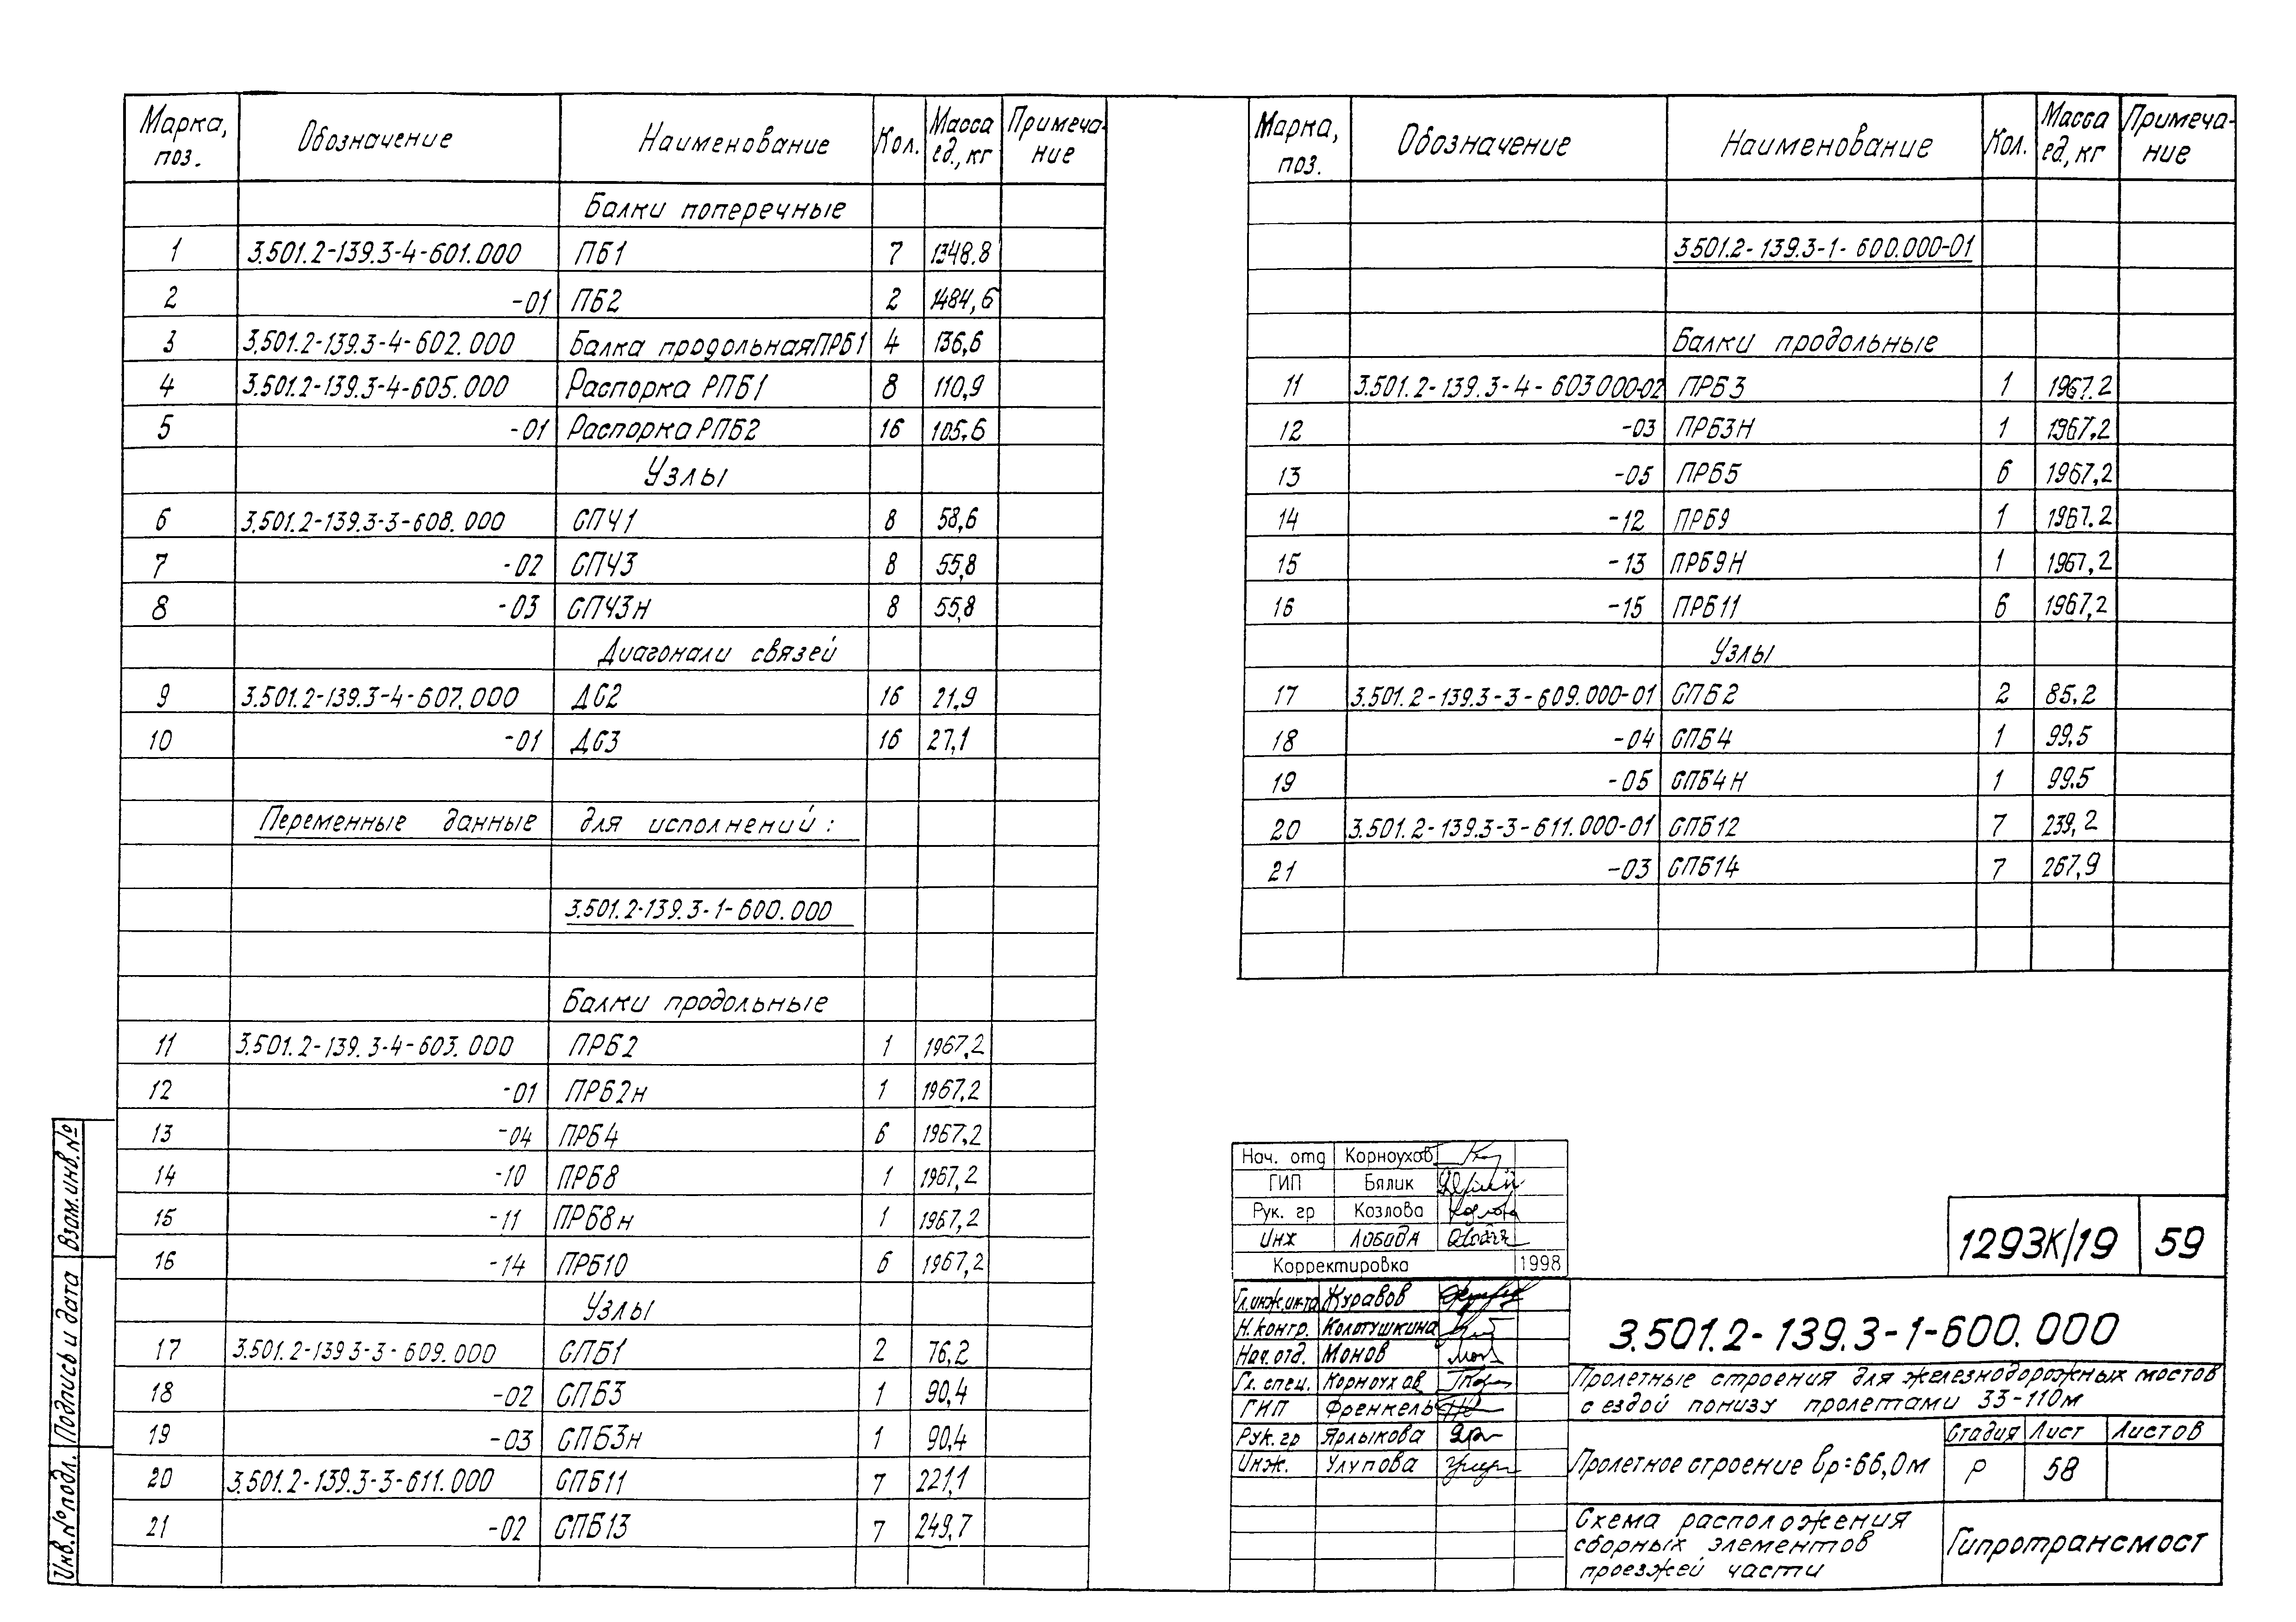 Марка, поз. Обозначение Наименование Кол. Масса ед., кг Примеча-ние
Балки поперечные
1 3.501.2-139.3-4-601.000 ПБ1 7 1348.8
2 -01 ПБ2 2 1484,6
3 3.501.2-139.3-4-602.000 Балка продольная ПРБ1 4 136,6
4 3.501.2-139.3-4-605.000 Распорка РПБ1 8 110,9
5 -01 Распорка РПБ2 16 105.6
Узлы
6 3.501.2-139.3-3-608.000 СПЧ1 8 58,6
7 -02 СПЧ3 8 55,8
8 -03 СПЧ3н 8 55,8
Диагонали связей
9 3.501.2-139.3-4-607.000 ДС2 16 21.9
10 -01 ДС3 16 27,1
Переменные данные для исполнений:
3.501.2-139.3-1-600.000
Балки продольные
11 3.501.2-139.3-4-603.000 ПРБ2 1 1967,2
12 -01 ПРБ2н 1 1967,2
13 -04 ПРБ4 6 1967,2
14 -10 ПРБ8 1 1967,2
15 -11 ПРБ8н 1 1967,2
16 -14 ПРБ10 6 1967,2
Узлы
17 3.501.2-139 3-3-609.000 СПБ1 2 76,2
18 -02 СПБ3 1 90,4
19 -03 СПБ3н 1 90,4
20 3.501.2-139.3-3-611.000 СПБ11 7 221,1
21 -02 СПБ13 7 249,7
Марка, поз. Обозначение Наименование Кол. Масса ед, кг Примеча-ние
3.501.2-139.3-1-600.000-01
Балки продольные
11 3.501.2-139.3-4-603 000-02 ПРБ3 1 1967.2
12 -03 ПРБ3Н 1 1967.2
13 -05 ПРБ5 6 1967,2
14 -12 ПРБ9 1 1967.2
15 -13 ПРБ9Н 1 1967,2
16 -15 ПРБ11 6 1967,2
Узлы
17 3.501.2-139.3-3-609.000-01 СПБ2 2 85,2
18 -04 СПБ4 1 99,5
19 -05 СПБ4Н 1 99.5
20 3.501.2-139.3-3-611.000-01 СПБ12 7 239,2
21 -03 СПБ14 7 267,9
Нач. отд Корноухов
ГИП Бялик
Рук. гр Козлова
Инж ЛОБОДА
Корректировка 1998
Гл.инж.ин-та Журавов
Н.контр. Колотушкина
Нач.отд. Монов
Гл. спец. Корноухов
ГИП Френкель
Рук.гр Ярлыкова
Инж. Улупова
1293К/19 59
3.501.2-139.3-1-600.000
Пролетные строения для железнодорожных мостов
с ездой понизу пролетами 33-110м
Пролетное строение lр=66,0м
Стадия Лист Листов
Р 58
Схема расположения
сборных элементов
проезжей части
Гипротрансмост
Взам.инв.№
Подпись и дата
Инв.№ подл.